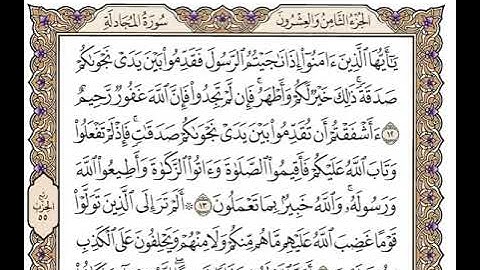 الجزء الثامن والعشرون
سورة المجادلة
يَٰٓأَيُّهَا ٱلَّذِينَ ءَامَنُوٓا۟ إِذَا نَٰجَيْتُمُ ٱلرَّسُولَ فَقَدِّمُوا۟ بَيْنَ يَدَىْ نَجْوَىٰكُمْ
صَدَقَةً ۚ ذَٰلِكَ خَيْرٌ لَّكُمْ وَأَطْهَرُ ۚ فَإِن لَّمْ تَجِدُوا۟ فَإِنَّ ٱللَّهَ غَفُورٌ رَّحِيمٌ
١٢ ءَأَشْفَقْتُمْ أَن تُقَدِّمُوا۟ بَيْنَ يَدَىْ نَجْوَىٰكُمْ صَدَقَٰتٍ ۚ فَإِذْ لَمْ تَفْعَلُوا۟
وَتَابَ ٱللَّهُ عَلَيْكُمْ فَأَقِيمُوا۟ ٱلصَّلَوٰةَ وَءَاتُوا۟ ٱلزَّكَوٰةَ وَأَطِيعُوا۟ ٱللَّهَ
وَرَسُولَهُۥ ۚ وَٱللَّهُ خَبِيرٌۢ بِمَا تَعْمَلُونَ ١٣ ۞ أَلَمْ تَرَ إِلَى ٱلَّذِينَ تَوَلَّوْا۟
قَوْمًا غَضِبَ ٱللَّهُ عَلَيْهِم مَّا هُم مِّنكُمْ وَلَا مِنْهُمْ وَيَحْلِفُونَ عَلَى ٱلْكَذِبِ
ربع
الحزب
٥٥